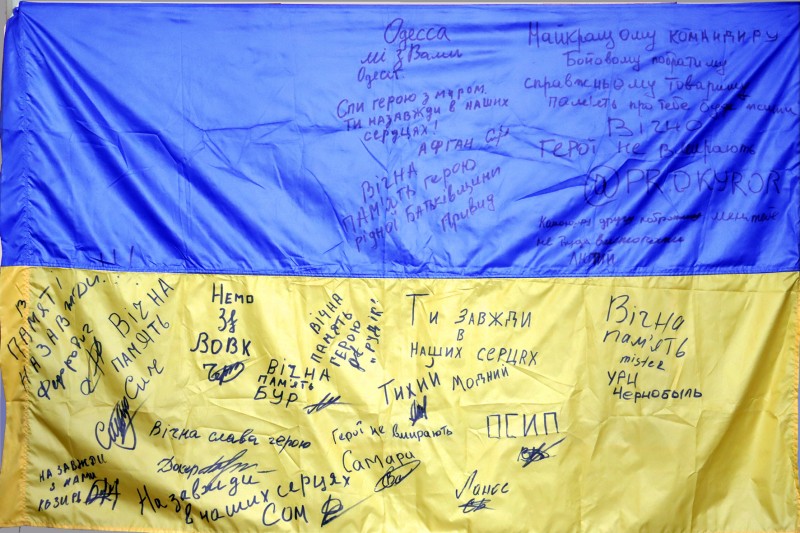 Одесса
мі з Вами
Одеса
Спи герою з миром.
Ти назавжди в наших
серцях!
АФГАН
ВІЧНА
ПАМ'ЯТЬ ГЕРОЮ
РІДНОЇ БАТЬКІВЩИНИ
Привид
Найкращому командиру
Бойовому побратиму
справжньому товаришу
Пам'ять про тебе буде
Вічно
Герої не вмирають
@PROKYROR
не
люди
В
ПАМЯТІ
НАЗАВЖДИ...
ВІЧНА
ПАМЯТЬ
Сич
Немо
ВОВК
ВІЧНА
ПАМ'ЯТЬ
БУР
ВІЧНА
ПАМЯТЬ
ГЕРОЮ
"РУДІК"
Ти завжди
в
наших серцях
Тихий Модний
Вічна
пам'ять
mister
УРН
Чернобыль
Вічна слава герою
Герої не вмирають
Самара
ОСИП
НА ЗАВЖДИ
З НАМИ
На завжди
в наших серцях
СОМ